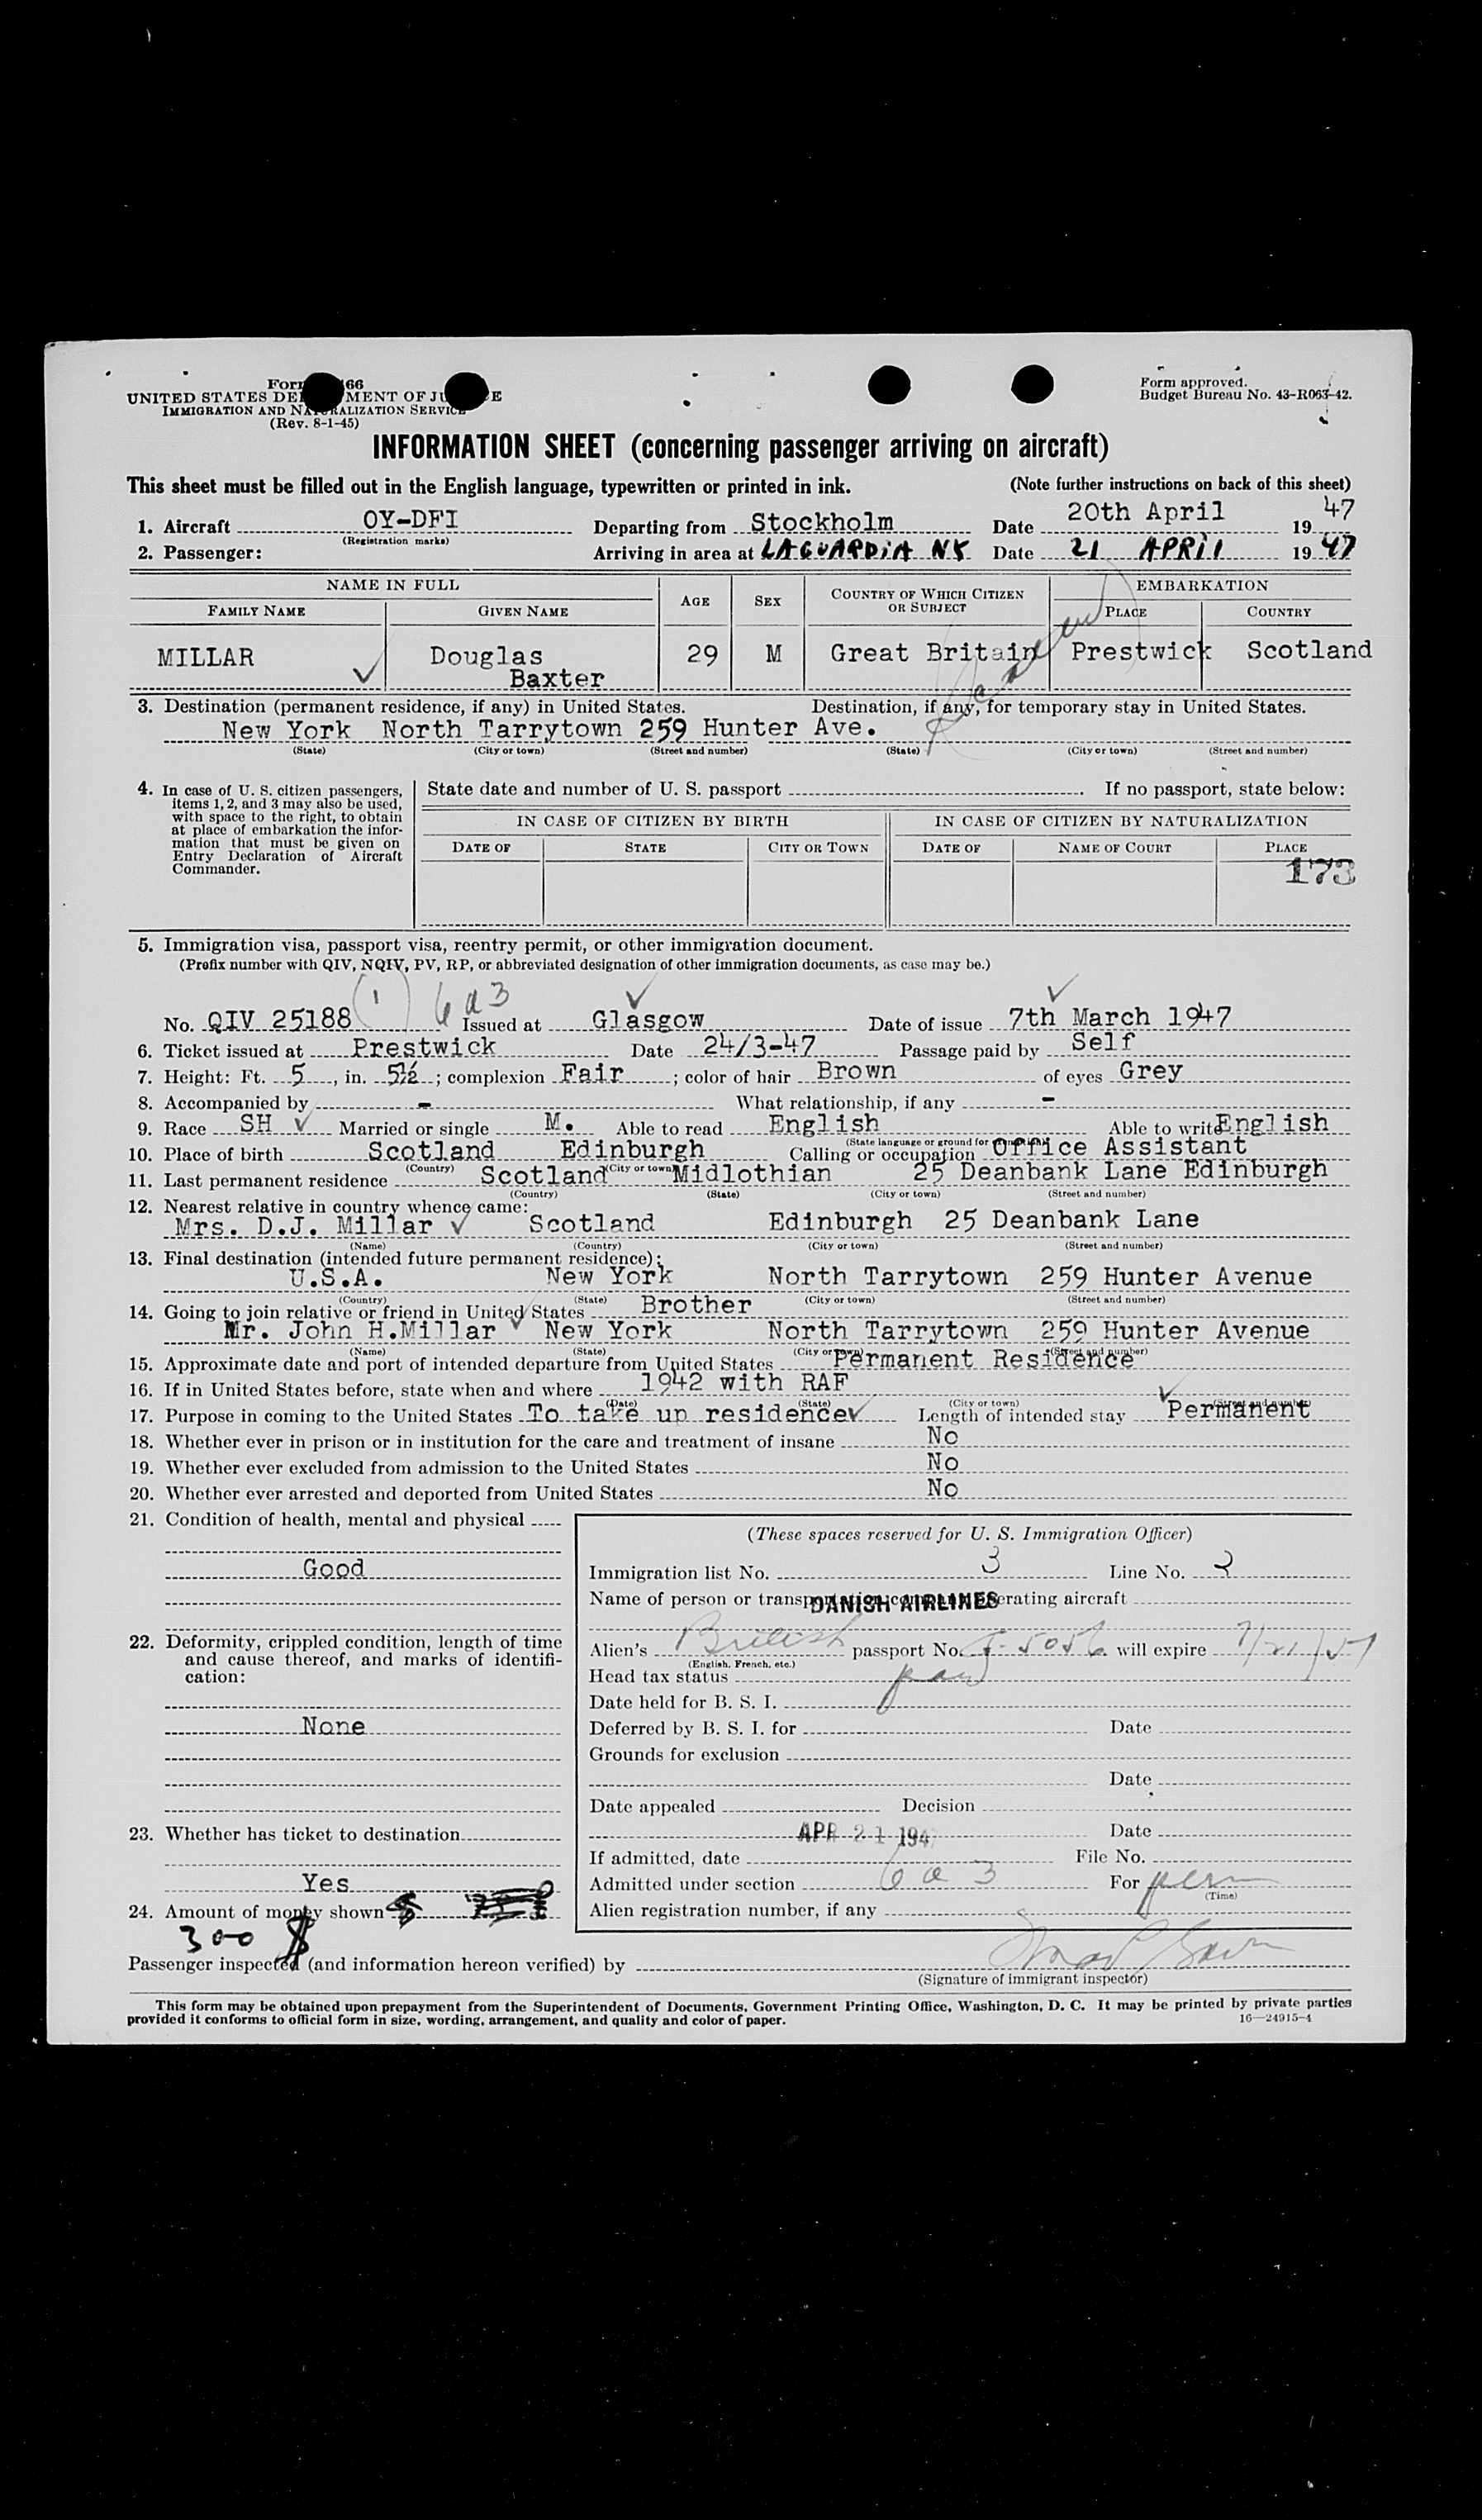 Form 66
UNITED STATES DE MENT OF JU E
IMMIGRATION AND NATURALIZATION SERVICE
(Rev. 8-1-45)
Form approved.
Budget Bureau No. 43-R063-42.
INFORMATION SHEET (concerning passenger arriving on aircraft)
This sheet must be filled out in the English language, typewritten or printed in ink. (Note further instructions on back of this sheet)
1. Aircraft OY-DFI Departing from Stockholm Date 20th April 19 47
(Registration marks)
2. Passenger: Arriving in area at LAGUARDIA NY Date 21 APRIL 19 47
NAME IN FULL AGE SEX COUNTRY OF WHICH CITIZEN OR SUBJECT EMBARKATION
FAMILY NAME GIVEN NAME PLACE COUNTRY
MILLAR Douglas 29 M Great Britain Prestwick Scotland
Baxter
3. Destination (permanent residence, if any) in United States. Destination, if any, for temporary stay in United States.
New York North Tarrytown 259 Hunter Ave.
(State) (City or town) (Street and number) (State) (City or town) (Street and number)
4. In case of U. S. citizen passengers, items 1, 2, and 3 may also be used, with space to the right, to obtain at place of embarkation the information that must be given on Entry Declaration of Aircraft Commander.
State date and number of U. S. passport . If no passport, state below:
IN CASE OF CITIZEN BY BIRTH IN CASE OF CITIZEN BY NATURALIZATION
DATE OF STATE CITY OR TOWN DATE OF NAME OF COURT PLACE
173
5. Immigration visa, passport visa, reentry permit, or other immigration document.
(Prefix number with QIV, NQIV, PV, RP, or abbreviated designation of other immigration documents, as case may be.)
(1) 6 a 3
No. QIV 25188 Issued at Glasgow Date of issue 7th March 1947
6. Ticket issued at Prestwick Date 24/3-47 Passage paid by Self
7. Height: Ft. 5, in. 5½; complexion Fair; color of hair Brown of eyes Grey
8. Accompanied by - What relationship, if any -
9. Race SH Married or single M. Able to read English Able to write English
(State language or ground for exemption)
10. Place of birth Scotland Edinburgh Calling or occupation Office Assistant
(Country) (City or town)
11. Last permanent residence Scotland Midlothian 25 Deanbank Lane Edinburgh
(Country) (State) (City or town) (Street and number)
12. Nearest relative in country whence came:
Mrs. D.J. Millar Scotland Edinburgh 25 Deanbank Lane
(Name) (Country) (City or town) (Street and number)
13. Final destination (intended future permanent residence):
U.S.A. New York North Tarrytown 259 Hunter Avenue
(Country) (State) (City or town) (Street and number)
14. Going to join relative or friend in United States Brother
Mr. John H.Millar New York North Tarrytown 259 Hunter Avenue
(Name) (State) (City or town) (Street and number)
15. Approximate date and port of intended departure from United States Permanent Residence
16. If in United States before, state when and where 1942 with RAF
(Date) (State) (City or town) (Street and number)
17. Purpose in coming to the United States To take up residence Length of intended stay Permanent
18. Whether ever in prison or in institution for the care and treatment of insane No
19. Whether ever excluded from admission to the United States No
20. Whether ever arrested and deported from United States No
21. Condition of health, mental and physical
Good
22. Deformity, crippled condition, length of time and cause thereof, and marks of identification:
None
23. Whether has ticket to destination
Yes
24. Amount of money shown $
300 $
(These spaces reserved for U. S. Immigration Officer)
Immigration list No. 3 Line No. 2
Name of person or transportation company operating aircraft
DANISH AIRLINES
Alien's British passport No. will expire
(English, French, etc.)
Head tax status paid
Date held for B. S. I.
Deferred by B. S. I. for Date
Grounds for exclusion
Date
Date appealed Decision
APR 21 194 Date
If admitted, date File No.
Admitted under section 6 a 3 For perm
(Time)
Alien registration number, if any
Passenger inspected (and information hereon verified) by
(Signature of immigrant inspector)
This form may be obtained upon prepayment from the Superintendent of Documents, Government Printing Office, Washington, D. C. It may be printed by private parties
provided it conforms to official form in size, wording, arrangement, and quality and color of paper. 16—24915-4